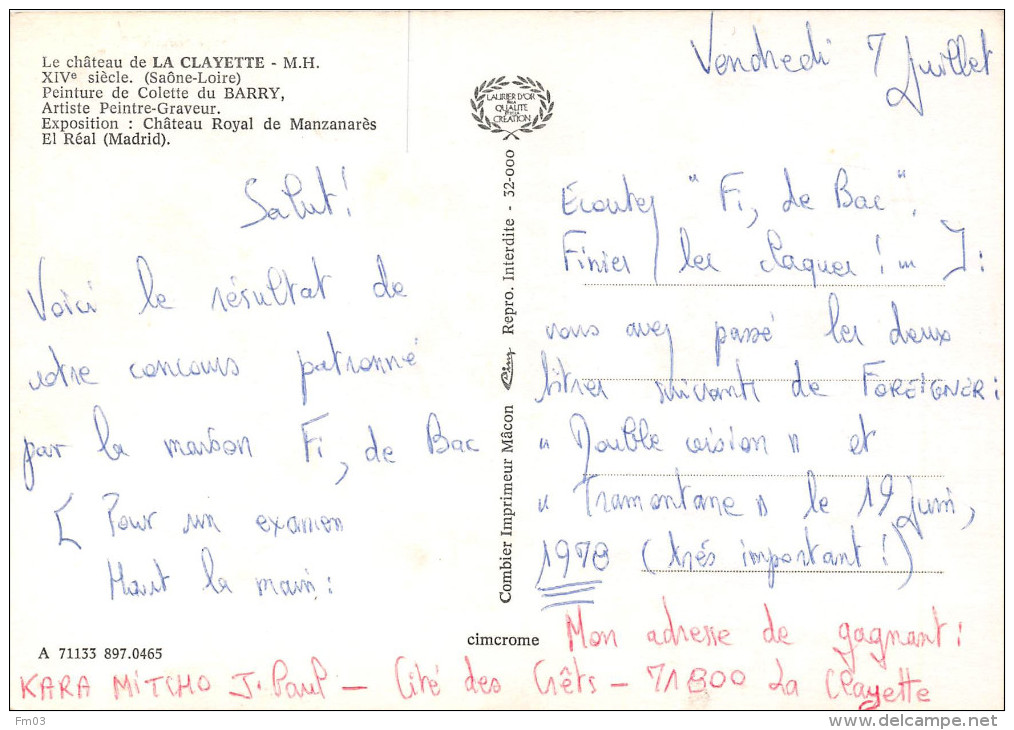 Le château de LA CLAYETTE - M.H.
XIVe siècle. (Saône-Loire)
Peinture de Colette du BARRY,
Artiste Peintre-Graveur.
Exposition : Château Royal de Manzanarès
El Réal (Madrid).
Salut!
Voici le résultat de
votre concours patronné
par la maison Fi, de Bac
[ Pour un examen
Haut la main :
A 71133 897.0465
LAURIER D'OR
QUALITE
CREATION
Combier Imprimeur Mâcon Repro. Interdite - 32-000
cimcrome
Vendredi 7 Juillet
Ecoutez "Fi, de Bac".
Finies les claques ! ... J :
vous avez passé les deux
titres suivants de FOREIGNER :
" Double vision " et
" Tramontane " le 19 Juin,
1978 (très important !)
Mon adresse de gagnant :
KARA MITCHO J. Paul - Cité des Crêts - 71800 La Clayette
Fm03
www.delcampe.net